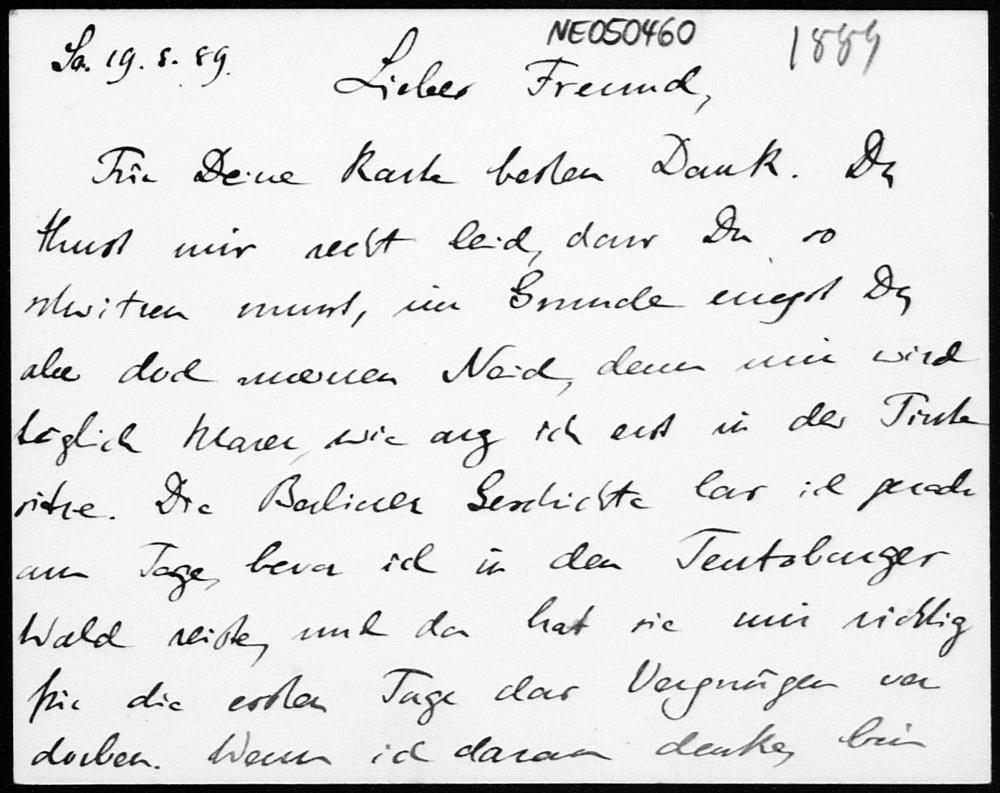 NE050460
1889
Sa. 19. 8. 89.
Lieber Freund,
Für Deine Karte besten Dank. Du
thust mir recht leid, dass Du so
schwitzen musst, im Grunde erregst Du
aber doch meinen Neid, denn mir wird
täglich klarer, wie arg ich erst in der Tinte
sitze. Die Berliner Geschichte las ich gerade
am Tage, bevor ich in den Teutoburger
Wald reiste, und da hat sie mir richtig
für die ersten Tage das Vergnügen ver
dorben. Wenn ich daran denke, bin